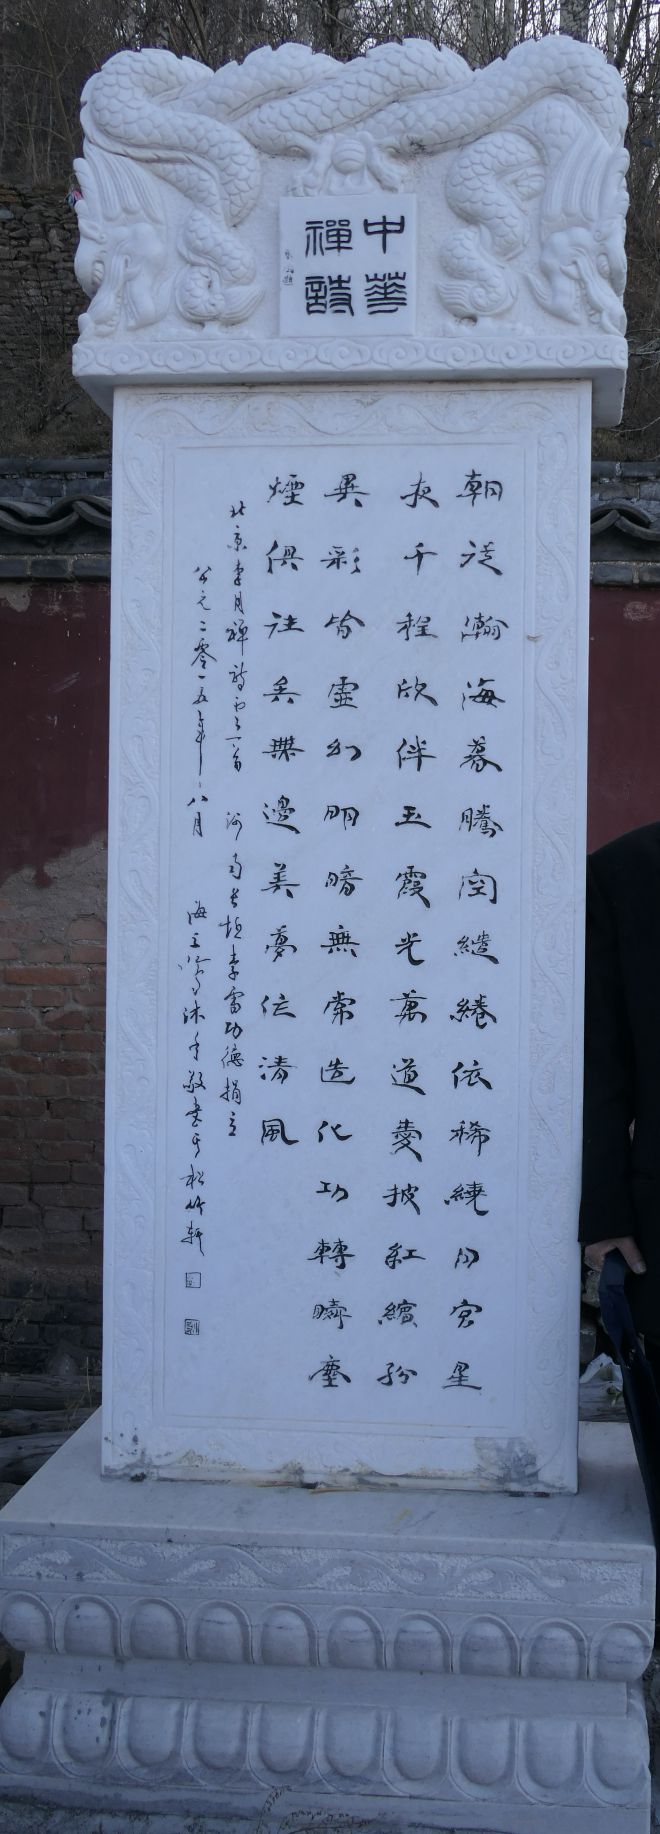 中華
禪詩
朝從瀚海暮騰空繾綣依稀繞月宮星
夜千程欣伴玉霞光萬道愛披紅繽紛
異彩皆靈幻明暗無常造化功轉瞬塵
煙俱往矣無邊美夢伝清風
北京 月禪詩 首 河南 李雷功德捐立
公元二零一五年八月 海 沐手敬書於松竹軒